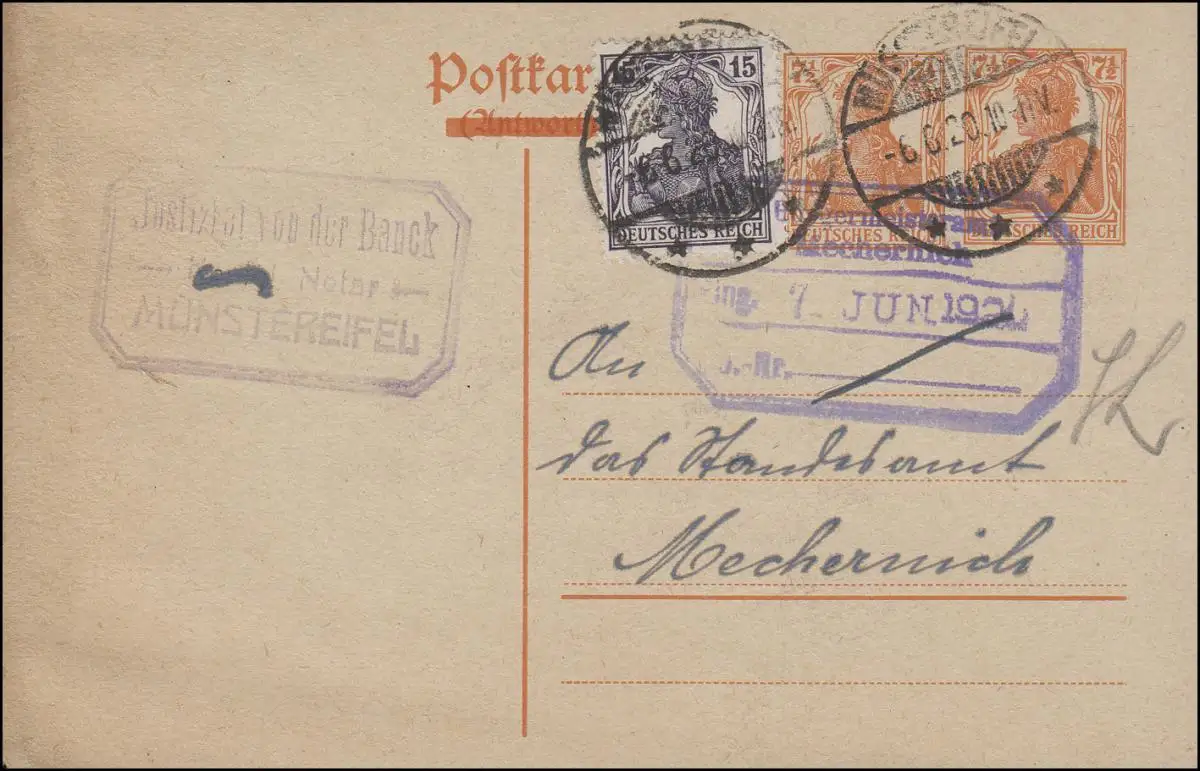 Postkar
(Antwort
15 15
DEUTSCHES REICH
7½
DEUTSCHES REICH
7½ 7½
DEUTSCHES REICH
MÜNSTEREIFEL
-6.6.20.10-11V.
von der Banck
Notar
MÜNSTEREIFEL
Bürgermeisteramt
Mechernich
Eing. 7. JUN 192
J.-Nr.
An
das Standesamt
Mechernich